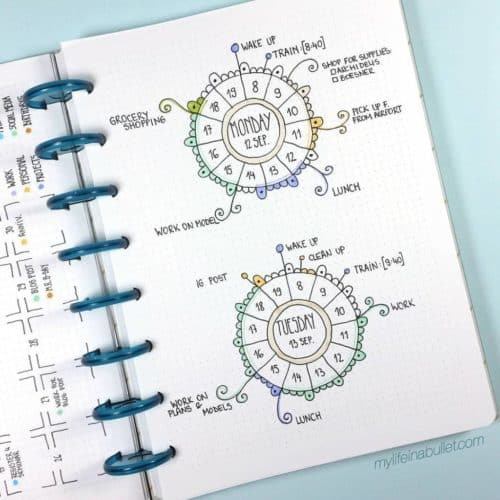 WAKE UP
TRAIN: [8:40]
SHOP FOR SUPPLIES:
ARCHIDEUS
BOESNER
PICK UP F.
FROM AIRPORT
LUNCH
WORK ON MODEL
GROCERY
SHOPPING
19 8 9 10 11 12 13 14 15 16 17 18
MONDAY
12 SEP.
WAKE UP
CLEAN UP
TRAIN: [9:40]
WORK
LUNCH
WORK ON
PLANS & MODELS
IG POST
19 8 9 10 11 12 13 14 15 16 17 18
TUESDAY
13 SEP.
SOCIAL MEDIA
BIRTHDAYS
WORK
PERSONAL
PROJECTS
30
ANNIV.
29
BLOG POST
28
BLOG POST
mylifeinabullet.com